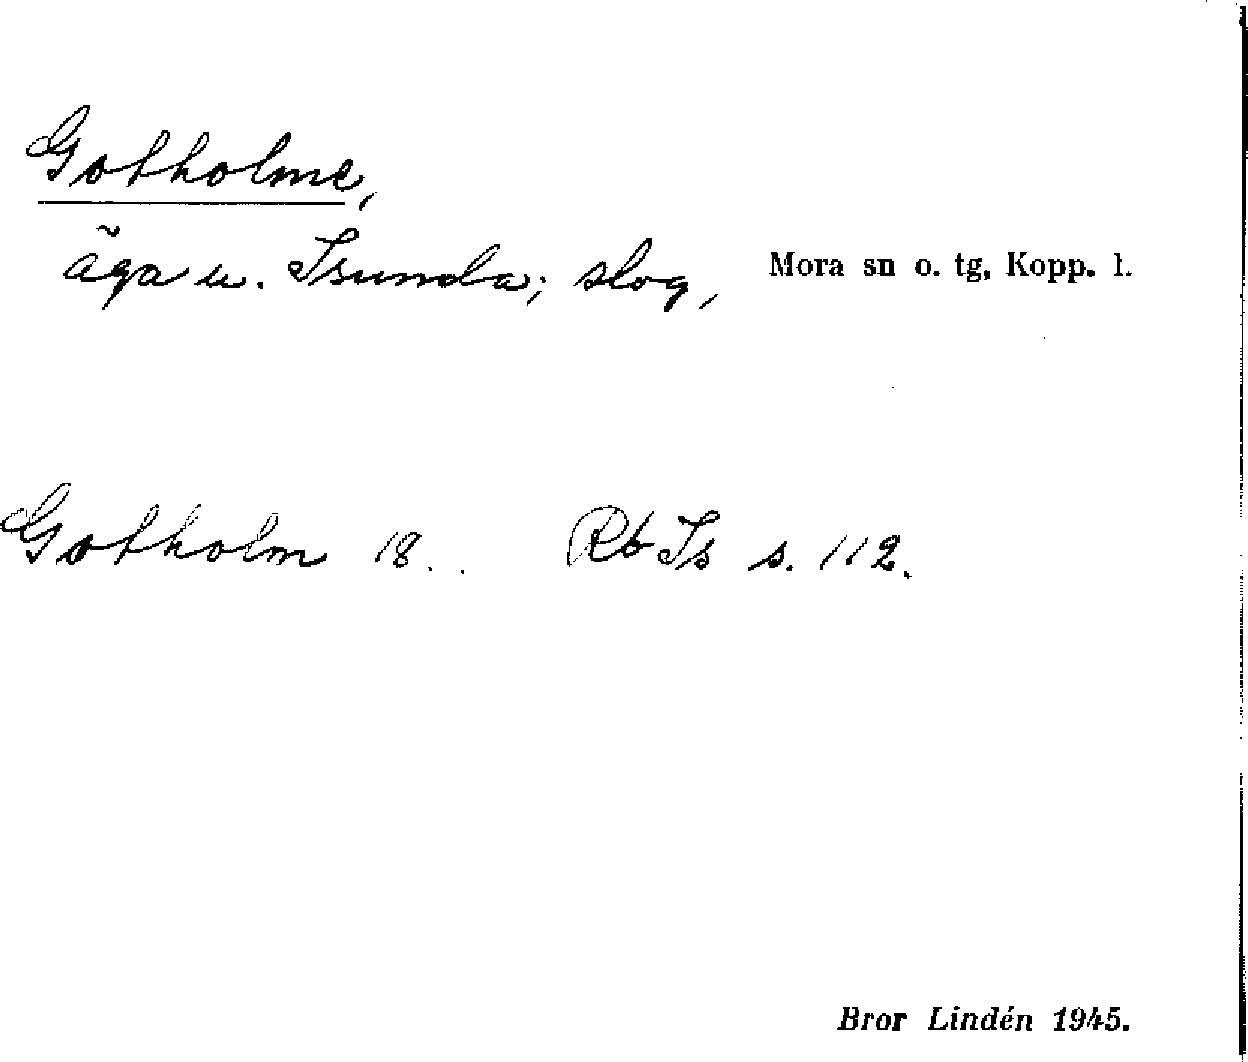 Gotholme,
äga u. Isunda; slog, Mora sn o. tg, Kopp. l.
Gotholm 18. Rb Is s. 112.
Bror Lindén 1945.